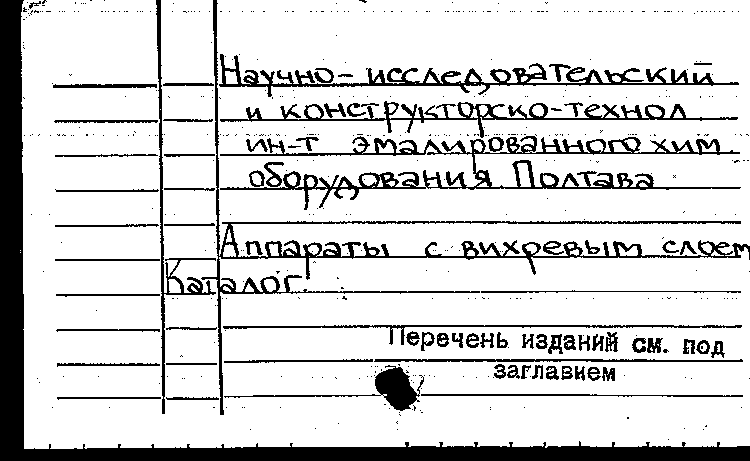 Научно-исследовательский
и конструкторско-технол.
ин-т эмалированного хим.
оборудования. Полтава
Аппараты с вихревым слоем
Каталог.
Перечень изданий см. под
заглавием